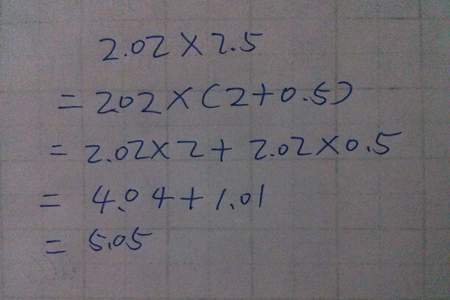 2.02×2.5
=202×(2+0.5)
=2.02×2+2.02×0.5
=4.04+1.01
=5.05